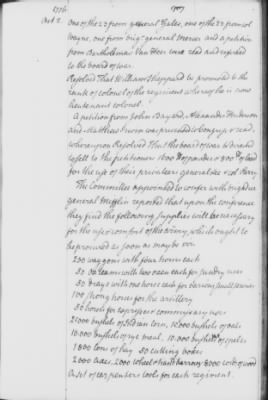 1776
Oct 2. One of the 22 from general Gates, one of the 22 from col
Wayne, one from brig. general Mercer and a petition
from Bartholomew Van Heer were read and referred
to the board of war.
Resolved That William Sheppard be promoted to the
rank of colonel of the regiment whereof he is now
lieutenant colonel.
A petition from John Bayard, Alexander Henderson
and Matthew Irwin was presented to Congress & read,
whereupon Resolved That the board of war be directed
to sell to the petitioners of powder & lead
for the use of their privateers general Lee & col. Parry
The Committee appointed to confer with brigadier
general Mifflin reported that upon the conference
they find the following supplies will be necessary
for the use & comfort of the army, which ought to
be provided as soon as may be viz
200 waggons with four horses each
50 ox teams with two oxen each for sundry uses
50 drays with one horse each for various small services
100 strong horses for the artillery
50 horses for expresses & commissary uses
20000 bushels of Indian corn, 10,000 bushels of oats
10,000 bushels of rye meal, 10,000 bushels of spelts
1800 tons of hay 50 cutting boxes
2000 axes, 2000 wheel & hand barrows 8000 cords of wood
A set of carpenters tools for each regiment.